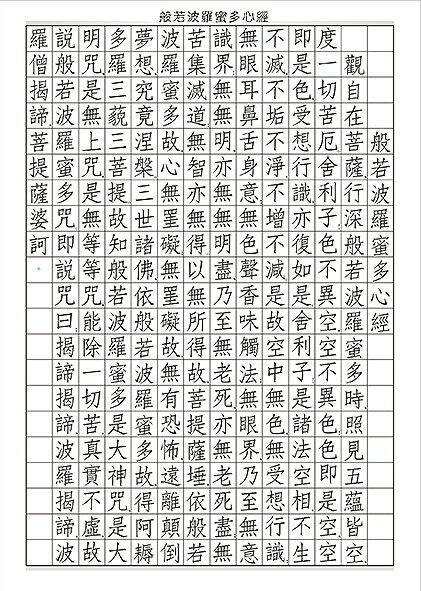 般若波羅蜜多心經
般若波羅蜜多心經
觀自在菩薩行深般若波羅蜜多時照見五蘊皆空
度一切苦厄舍利子色不異空空不異色色即是空空
即是色受想行識亦復如是舍利子是諸法空相不生
不滅不垢不淨不增不減是故空中無色無受想行識
無眼耳鼻舌身意無色聲香味觸法無眼界乃至無意
識界無無明亦無無明盡乃至無老死亦無老死盡無
苦集滅道無智亦無得以無所得故菩提薩埵依般若
波羅蜜多故心無罣礙無罣礙故無有恐怖遠離顛倒
夢想究竟涅槃三世諸佛依般若波羅蜜多故得阿耨
多羅三藐三菩提故知般若波羅蜜多是大神咒是大
明咒是無上咒是無等等咒能除一切苦真實不虛故
說般若波羅蜜多咒即說咒曰揭諦揭諦波羅揭諦波
羅僧揭諦菩提薩婆訶